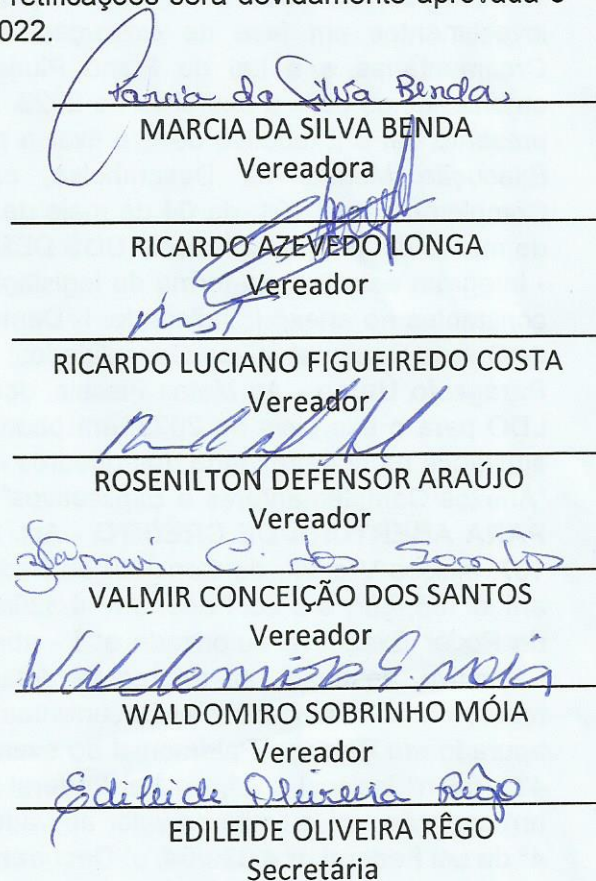 retificações será devidamente aprovada e
022.
Marcia da Silva Benda
MARCIA DA SILVA BENDA
Vereadora
RICARDO AZEVEDO LONGA
Vereador
RICARDO LUCIANO FIGUEIREDO COSTA
Vereador
ROSENILTON DEFENSOR ARAÚJO
Vereador
Valmir C. dos Santos
VALMIR CONCEIÇÃO DOS SANTOS
Vereador
Waldomiro S. Móia
WALDOMIRO SOBRINHO MÓIA
Vereador
Edileide Oliveira Rêgo
EDILEIDE OLIVEIRA RÊGO
Secretária